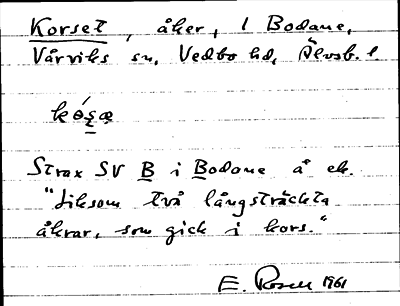 Korset, åker, 1 Bodane,
Vårviks sn, Vedbo hd, Älvsb. l.
Strax SV B i Bodane å ek.
"Liksom två långsträckta
åkrar, som gick i kors."
E. Rosell 1961